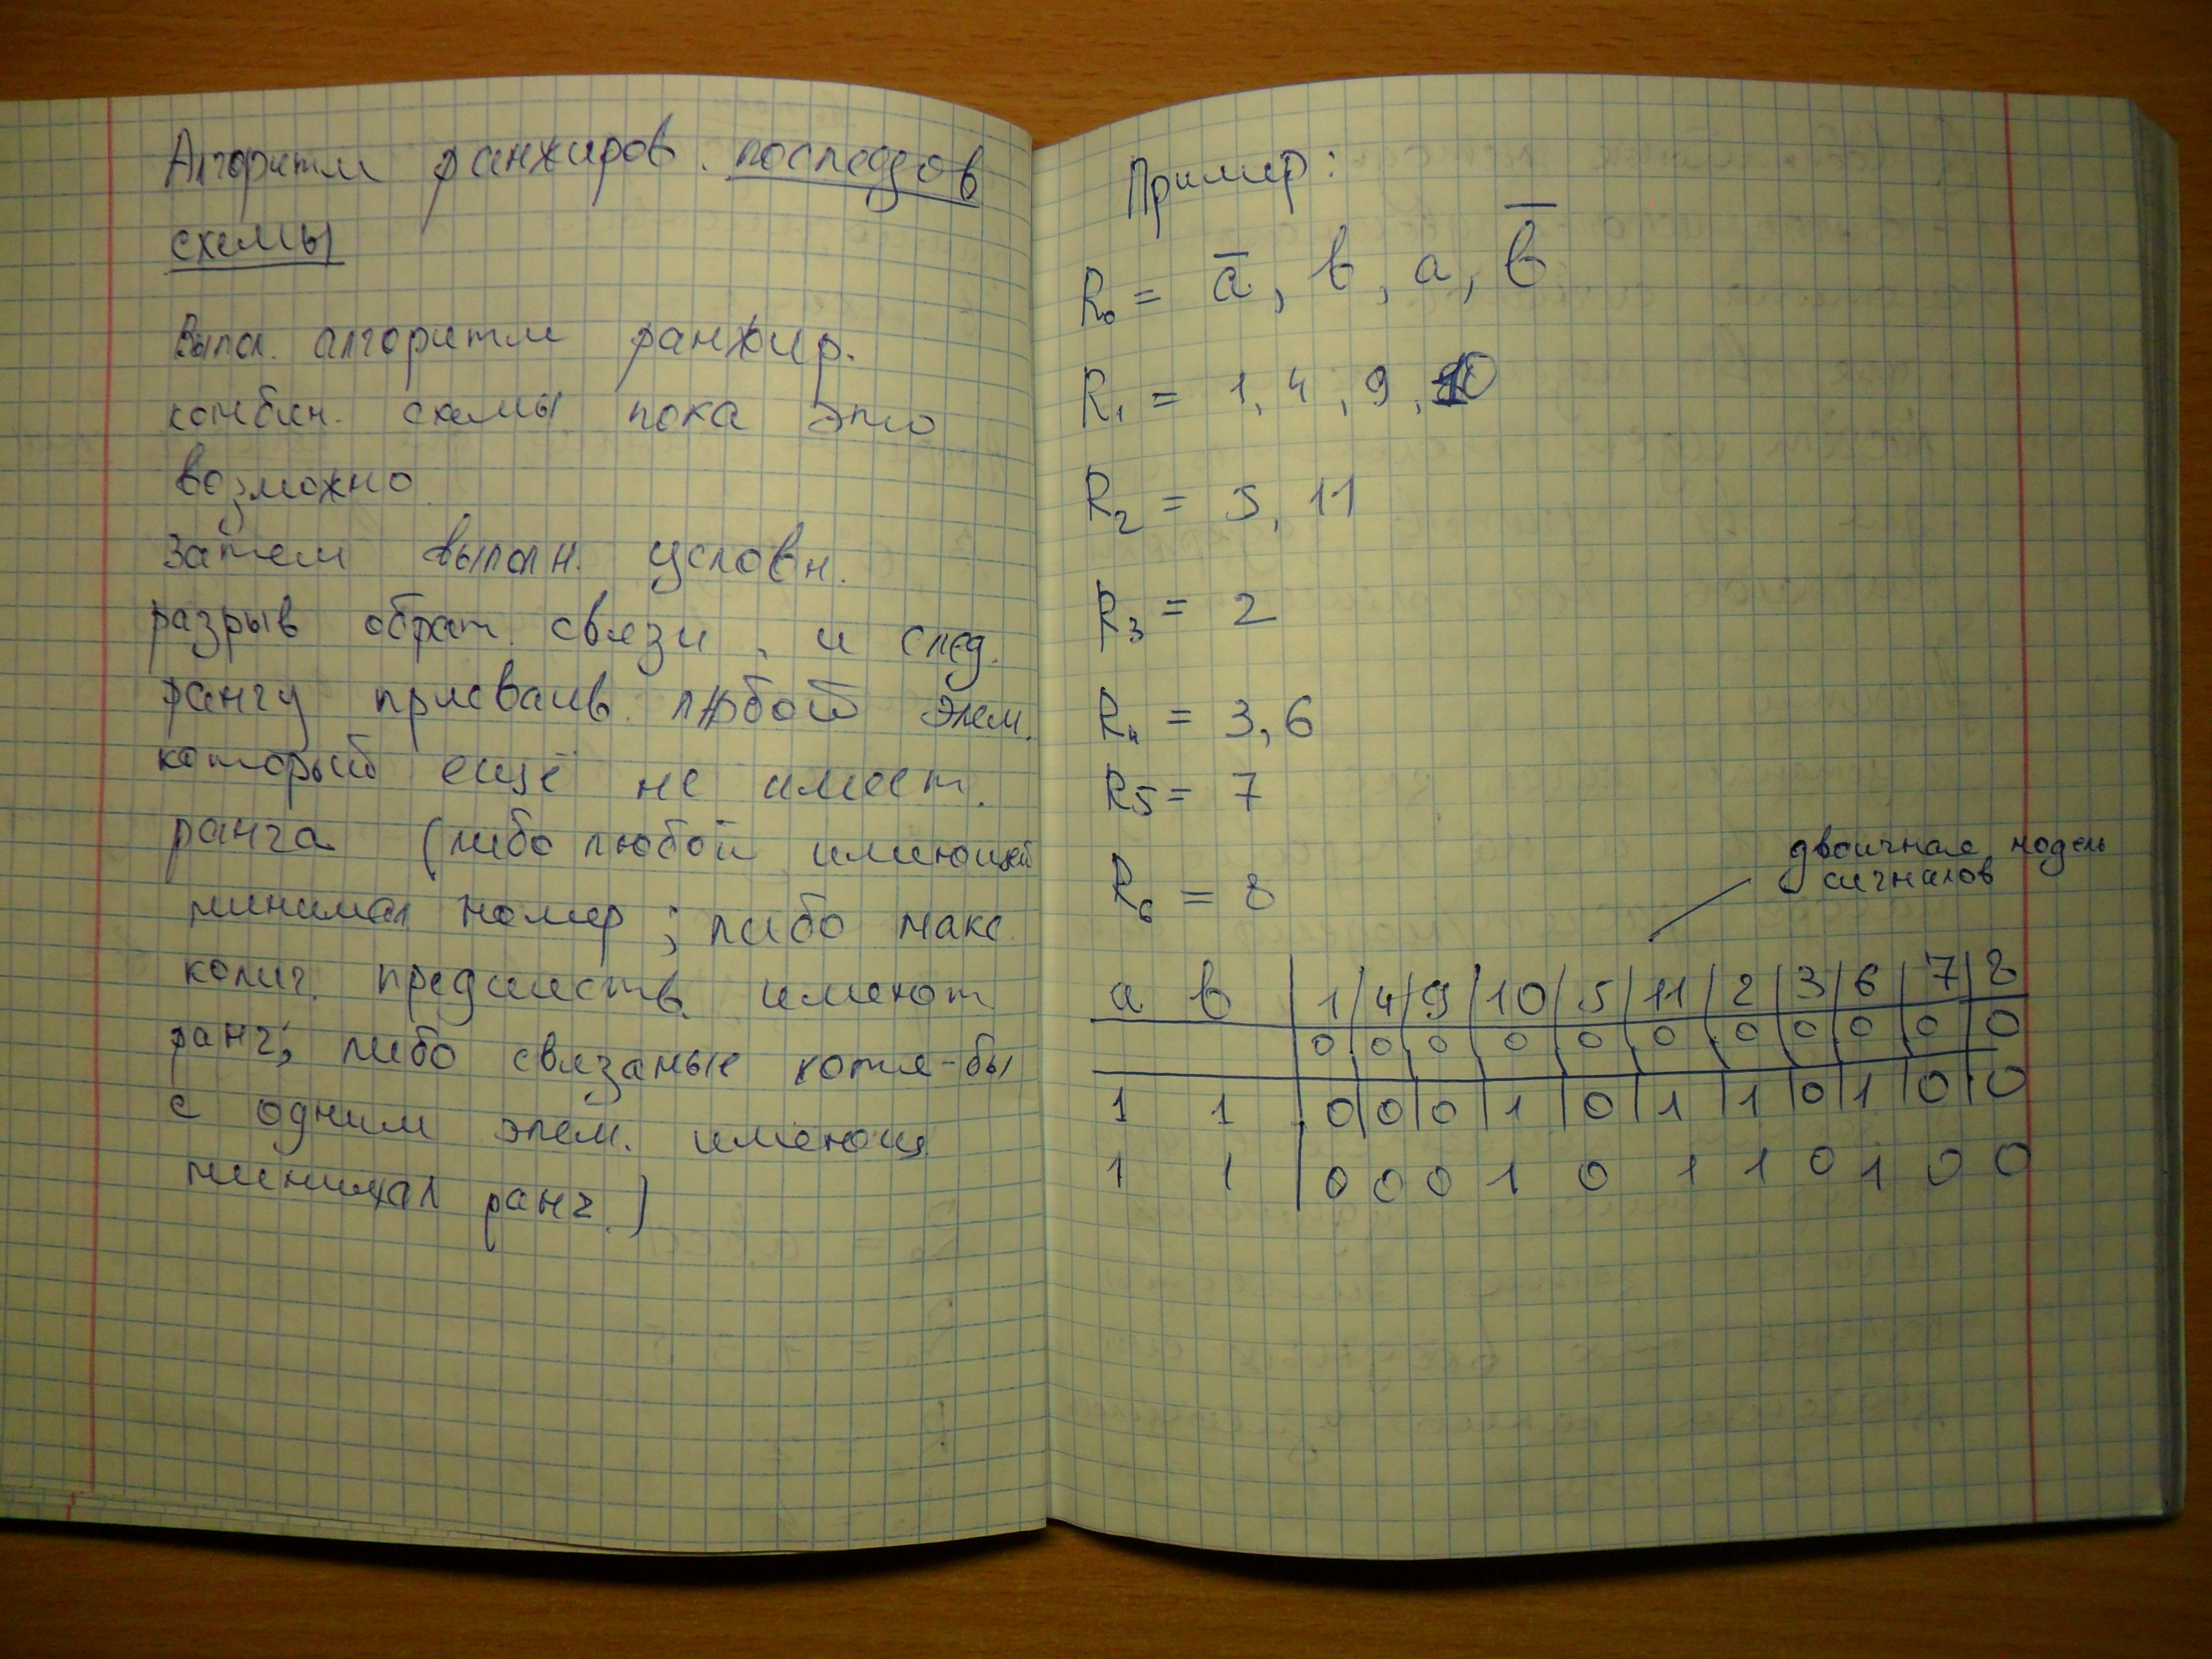 Алгоритм ранжиров. последов
схемы
Выпол. алгоритм ранжир.
комбин. схемы пока это
возможно
Затем выполн. условн.
разрыв обрат. связи, и след.
рангу присваив. любой элем.
который ещё не имеет.
ранга (либо любой имеющей
минимал номер; либо макс.
колич. предшеств. имеют
ранг; либо связаные хотя-бы
с одним элем. имеющ
минимал ранг.)
Пример:
R₀ = a̅, b, a, b̅
R₁ = 1, 4, 9, 10
R₂ = 5, 11
R₃ = 2
R₄ = 3, 6
R5 = 7
R₆ = 8
двоичная модель
сигналов
a b | 1 | 4 | 9 | 10 | 5 | 11 | 2 | 3 | 6 | 7 | 8
0 0 0 0 0 0 0 0 0 0 0
1 1 | 0 | 0 | 0 | 1 | 0 | 1 | 1 | 0 | 1 | 0 | 0
1 1 | 0 0 0 1 0 1 1 0 1 0 0